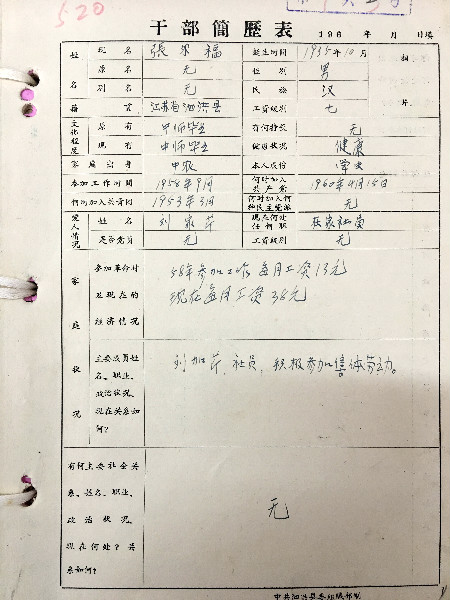 520
干部简歷表
196 年 月 日填
姓名 现名 張 福 誕生时间 1935年10月 相片
原名 无 性别 男
别名 无 民族 汉
籍貫 江苏省泗洪县 工資級别 七
文化程度 原有 中师毕业 有何特长 无
现有 中师毕业 健康状况 健康
家庭出身 中农 本人成份 学生
参加工作时间 1958年9月 何时加入共产党 1960年4月15日
何时加入共青团 1953年3月 何时加入何种民主党派 无
爱人情况 姓名 刘家芹 现在何处任何职 在家社员
是否党员 无 工資級别 无
家庭状况
参加革命时及现在的经济情况
58年参加工作每月工资13元
现在每月工资38元
主要成员姓名、职业、政治状况、现在关系如何?
刘加芹,社员,积极参加集体劳动。
有何主要社会关系、姓名、职业、政治状况、现在何处?关系如何?
无
中共泗洪县委組織部制